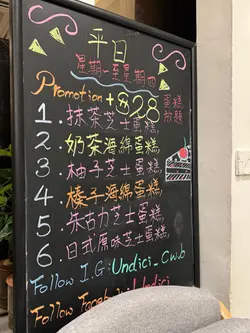 平日
星期一至星期四
Promotion + $28 蛋糕
放題
1. 抹茶芝士蛋糕
2. 奶茶海綿蛋糕
3. 柚子芝士蛋糕
4. 榛子海綿蛋糕
5. 朱古力芝士蛋糕
6. 日式原味芝士蛋糕
Follow I.G: Undici_Cwb
Follow Facebook: Undici